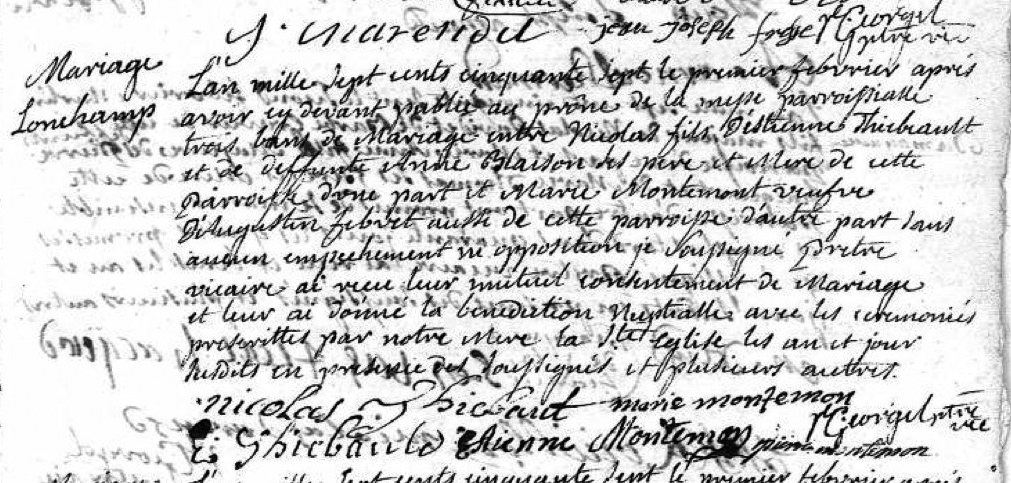 jean joseph J Georgel
ptre vic
Mariage
Lonchamp
L'an mille sept cents cinquante sept le premier febvrier après
avoir cy devant publié au prône de la messe parroissialle
trois bans de Mariage entre Nicolas fils D'Estienne Thiebault
et de deffunte Anne Blaison ses pere et Mere de cette
Parroisse d'une part et Marie Montemont veufve
D'Augustin febvret aussi de cette parroisse d'autre part sans
aucun empechement ni opposition je soussigné Prêtre
vicaire ai recu leur mutuel consentement de Mariage
et leur ai donné la bénédiction Nuptialle avec les ceremonies
prescrittes par notre Mere la Ste Eglise les an et jour
susdits en presence des soussignés et plusieurs autres.
nicolas Thiebaut marie montemon
J Georgel ptre vic
E Thiebauld Etienne Montemon montemon
L'an mille sept cents cinquante sept le premier febvrier après